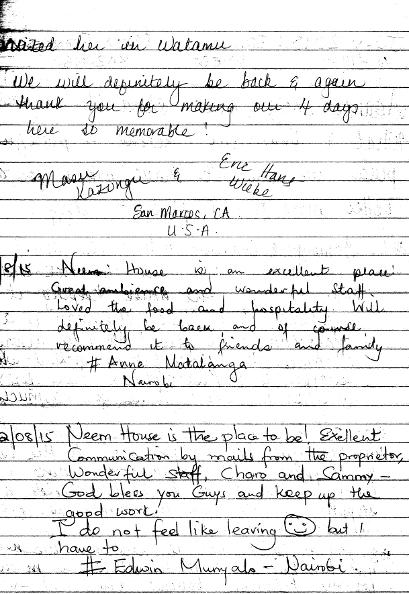 her in Watamu
We will definitely be back & again
thank you for making our 4 days
here so memorable!
Kazungu & Eric Hans
Wiebe
San Marcos, CA
U.S.A.
8/15 Neem House is an excellent place!
Great ambience and wonderful staff
Loved the food and hospitality Will
definitely be back and of course
recommend it to friends and family
# Anne Matalanga
Nairobi
2/08/15 Neem House is the place to be! Exellent
Communication by mails from the proprietor,
Wonderful staff, Charo and Sammy –
God bless you Guys and keep up the
good work!
I do not feel like leaving ☺ but I
have to
# Edwin Munyalo – Nairobi.